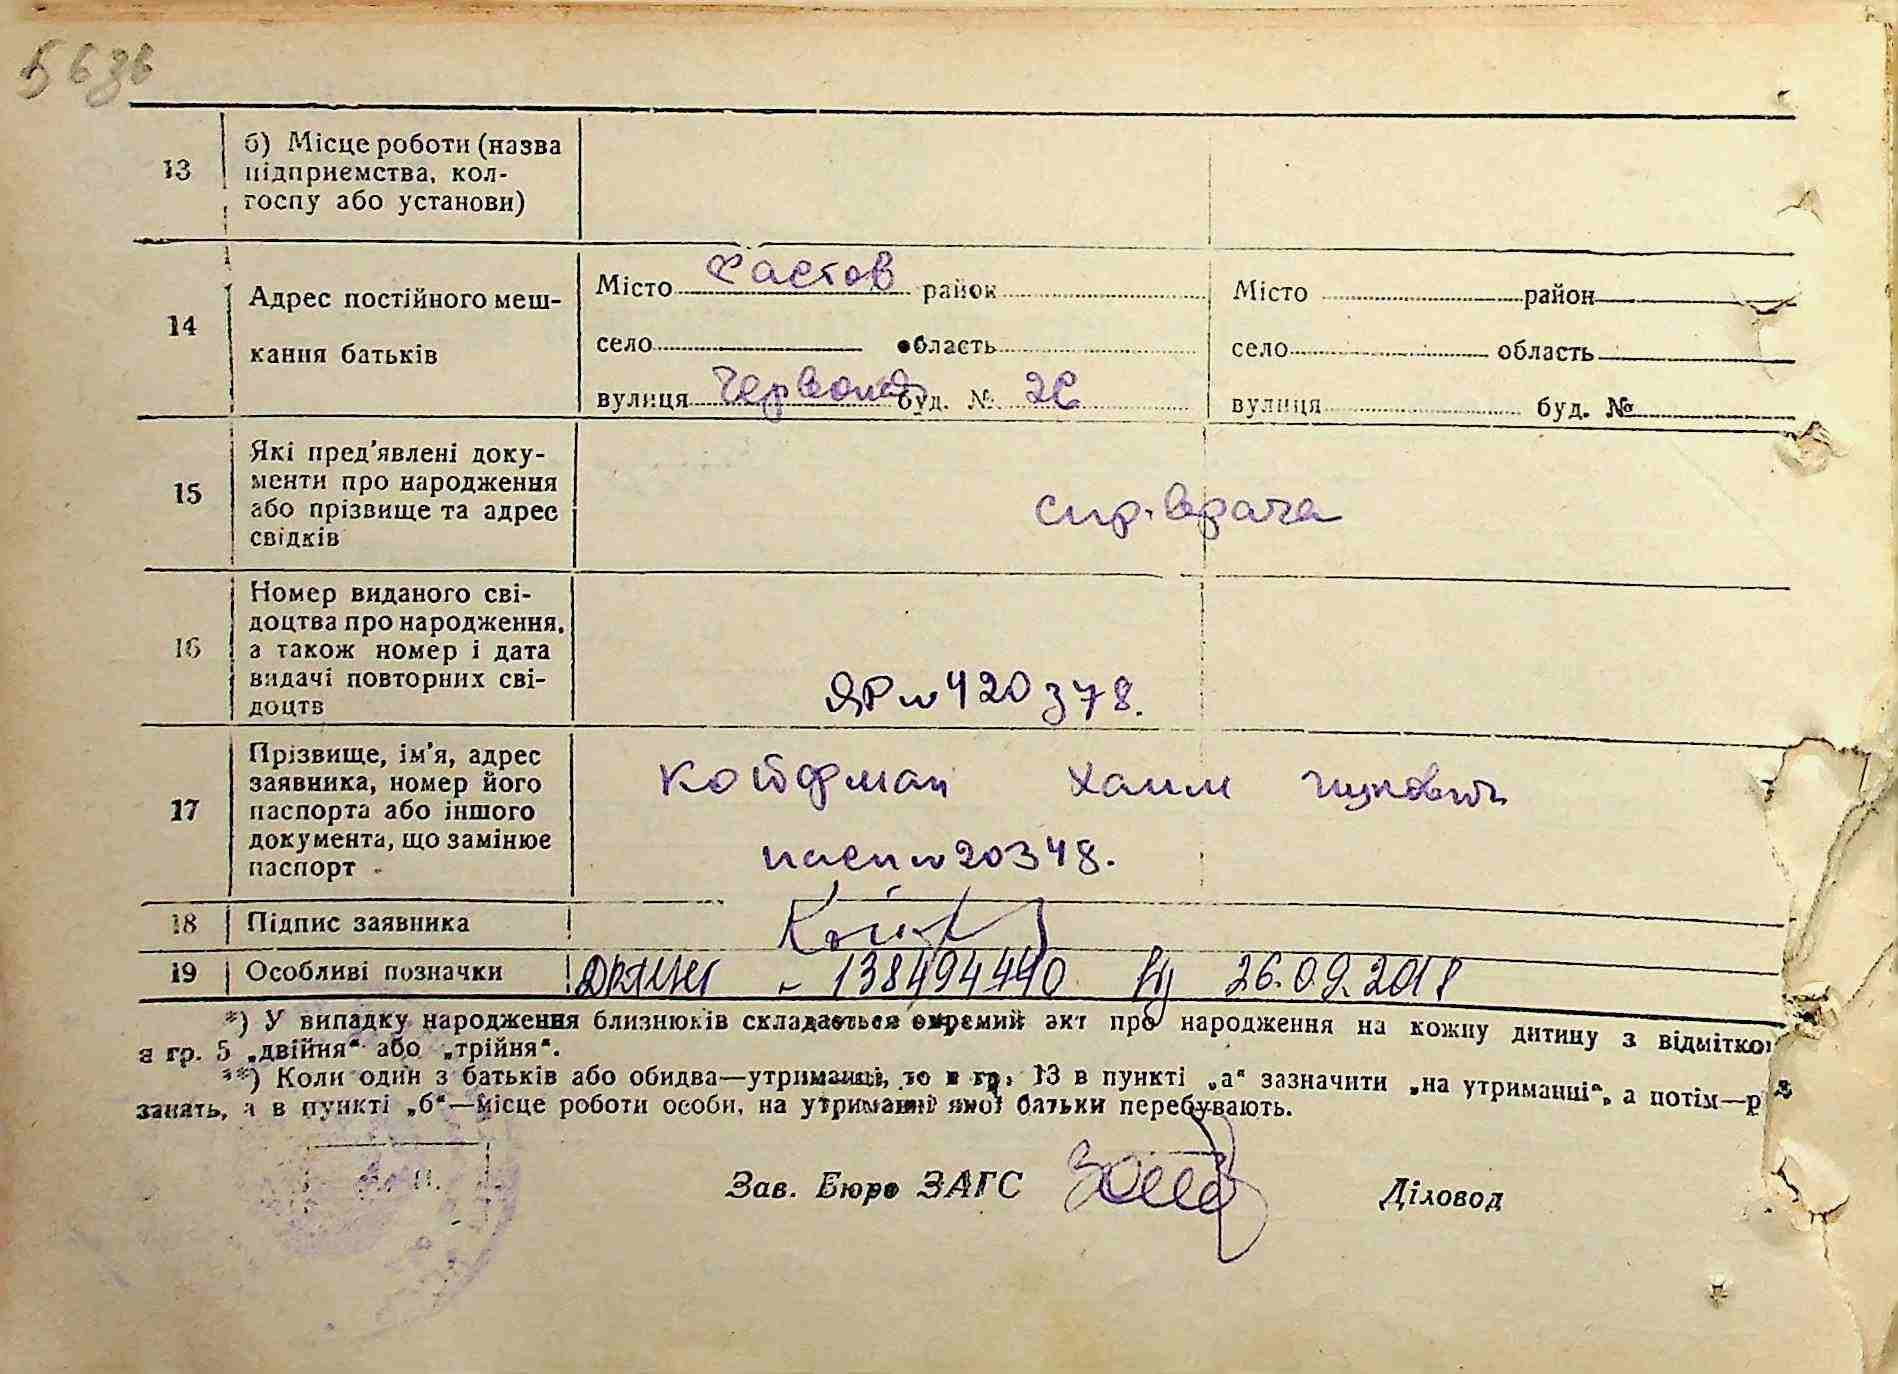 13
б) Місце роботи (назва
підприємства, кол-
госпу або установи)
14
Адрес постійного меш-
кання батьків
Місто Фастов район
село область
вулиця Червона буд. №
Місто район
село область
вулиця буд. №
15
Які пред'явлені доку-
менти про народження
або прізвище та адрес
свідків
спр. врача
16
Номер виданого сві-
доцтва про народження,
а також номер і дата
видачі повторних сві-
доцтв
ЯР № 420378.
17
Прізвище, ім'я, адрес
заявника, номер його
паспорта або іншого
документа, що замінює
паспорт
Койфман Хаим
пасп № 20348.
18
Підпис заявника
19
Особливі позначки
138494440 26.09.2018
*) У випадку народження близнюків складається окремий акт про народження на кожну дитину з відмітко
в гр. 5 „двійня“ або „трійня“.
**) Коли один з батьків або обидва—утриманці, то в гр. 13 в пункті „а“ зазначити „на утриманні“, а потім—р
занять, а в пункті „б“—місце роботи особи, на утриманні якої батьки перебувають.
Зав. Бюро ЗАГС
Діловод